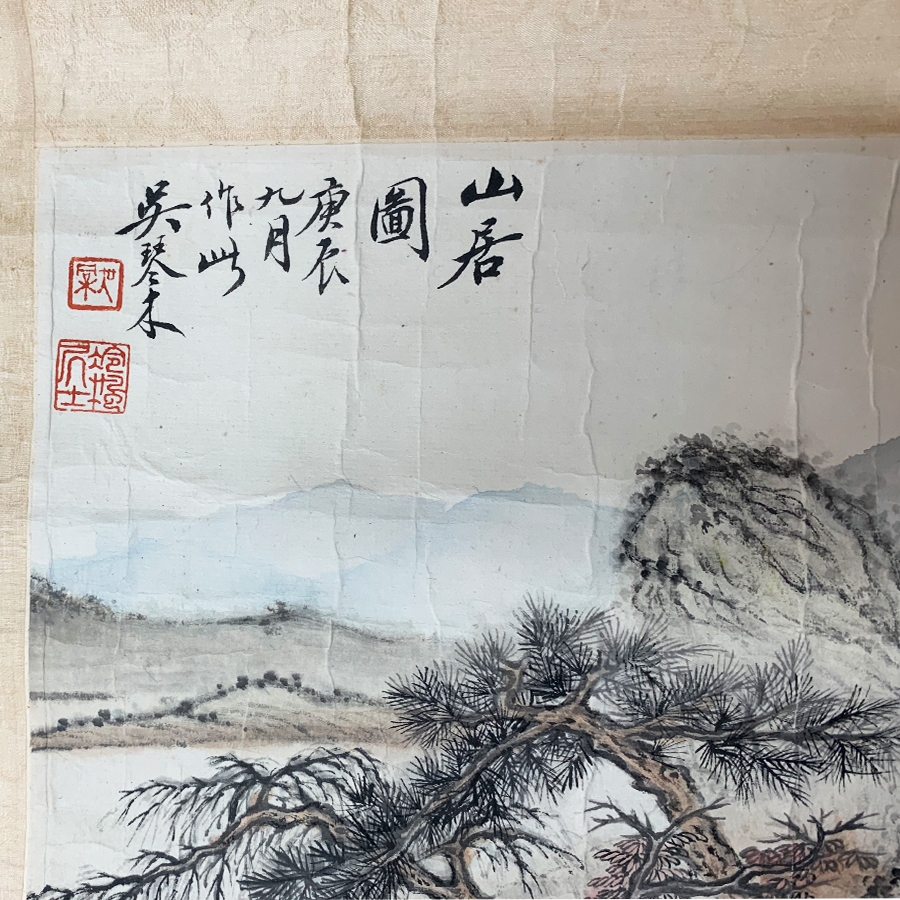 山居
圖
庚辰
九月
作此
吳琴木